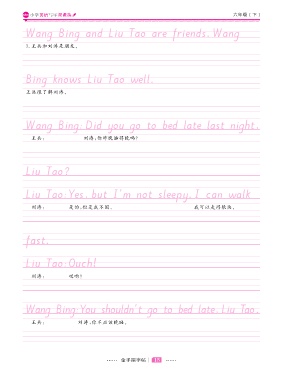 小学英语写字课课练
六年级（下）
Wang Bing and Liu Tao are friends. Wang
1. 王兵和刘涛是朋友。
Bing knows Liu Tao well.
王兵很了解刘涛。
Wang Bing: Did you go to bed late last night,
王兵： 刘涛，你昨晚睡得晚吗？
Liu Tao?
Liu Tao: Yes, but I'm not sleepy. I can walk
刘涛： 是的，但是我不困。 我可以走得很快。
fast.
Liu Tao: Ouch!
刘涛： 哎哟！
Wang Bing: You shouldn't go to bed late, Liu Tao.
王兵： 刘涛，你不应该晚睡。
15